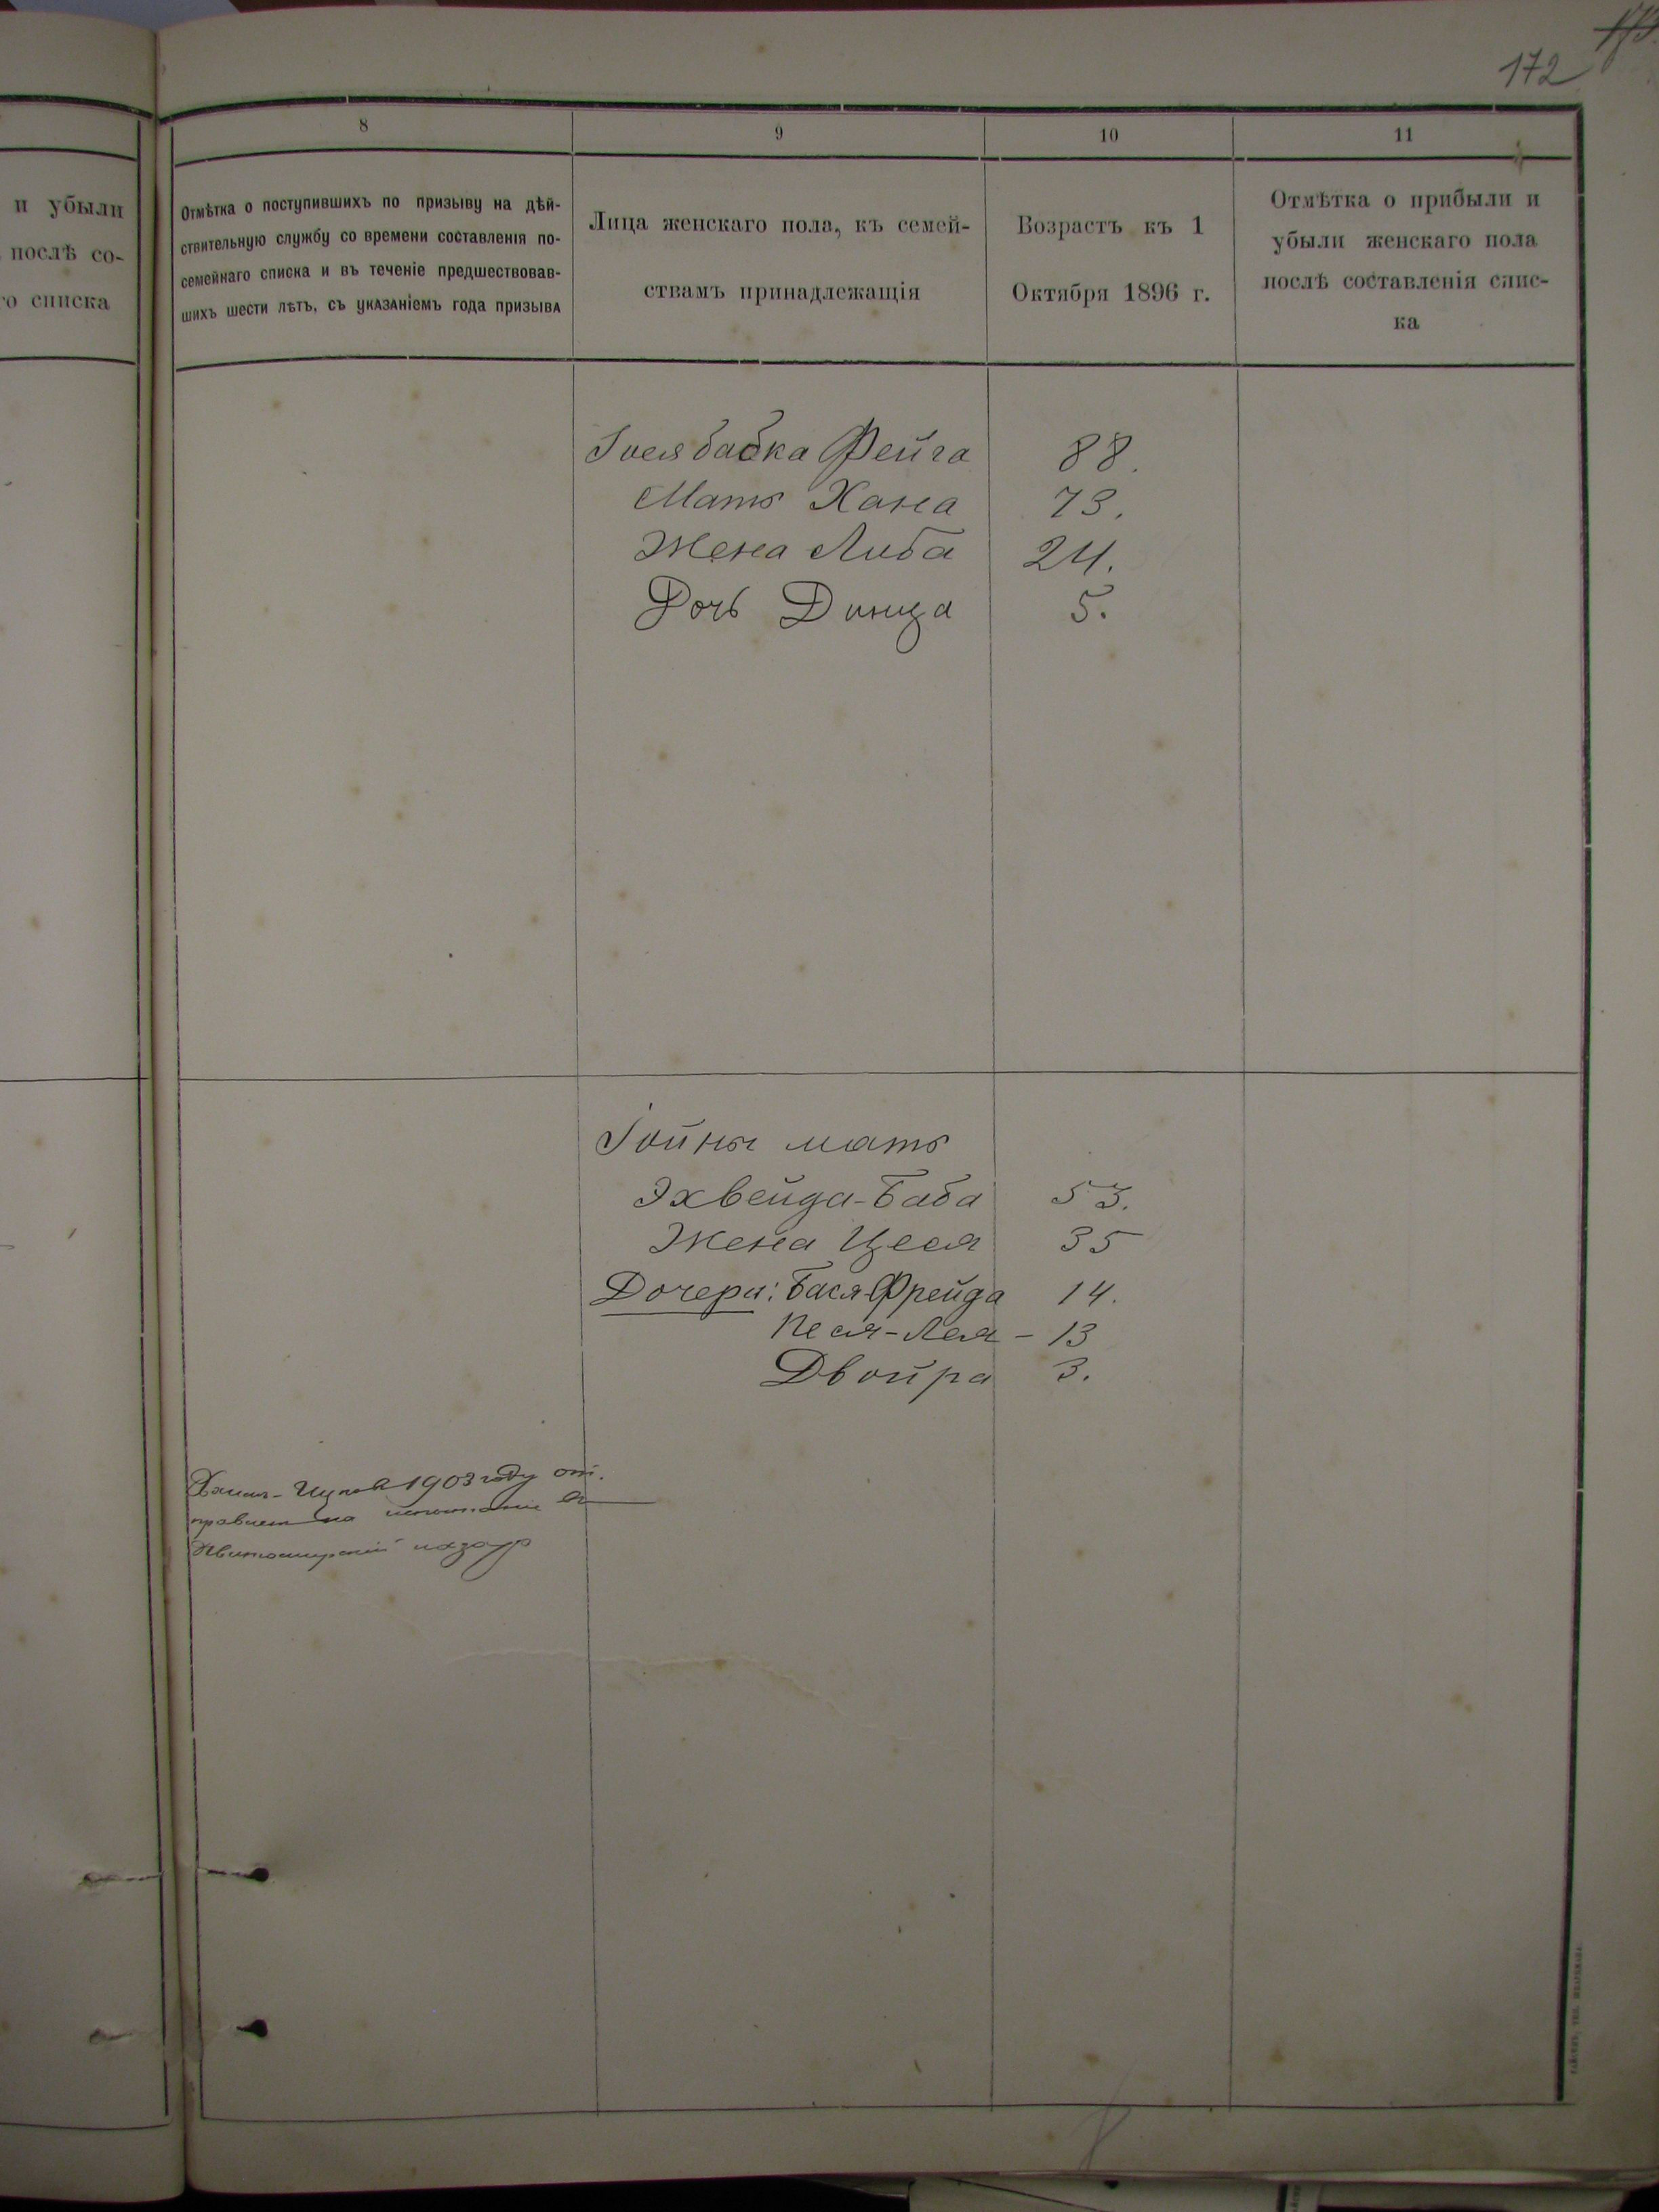 172
и убыли
послѣ со-
го списка
8
9
10
11
Отмѣтка о поступившихъ по призыву на дѣй-
ствительную службу со времени составленія по-
семейнаго списка и въ теченіе предшествовав-
шихъ шести лѣтъ, съ указаніемъ года призыва
Лица женскаго пола, къ семей-
ствамъ принадлежащія
Возрастъ къ 1
Октября 1896 г.
Отмѣтка о прибыли и
убыли женскаго пола
послѣ составленія спис-
ка
бабка Фейга 88.
Мать Хана 73.
Жена Либа 24.
Дочь Динца 5.
Іойны мать
Эхвейда-Баба 53.
Жена Цеся 35
Дочери: Бася-Фрейда 14.
Песя-Лея - 13
Двойра 3.
1903 году от.
правлен на испытаніе въ